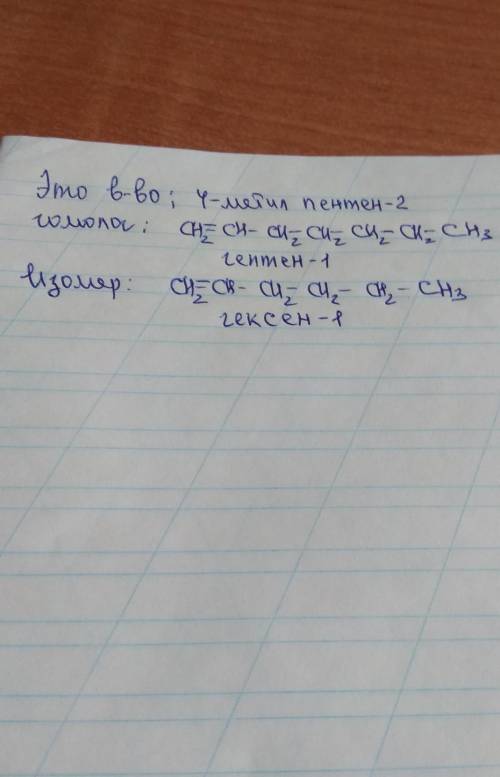 Это в-во; 4-метил пентен-2
гомолог: CH₂=CH-CH₂-CH₂-CH₂-CH₂-CH₃
гептен-1
Изомер: CH₂=CH-CH₂-CH₂-CH₂-CH₃
гексен-1